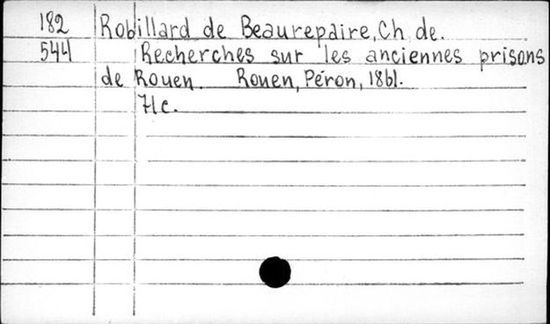 182 Robillard de Beaurepaire, Ch de.
544 Recherches sur les anciennes prisons
de Rouen. Rouen, Péron, 1861.
71c.